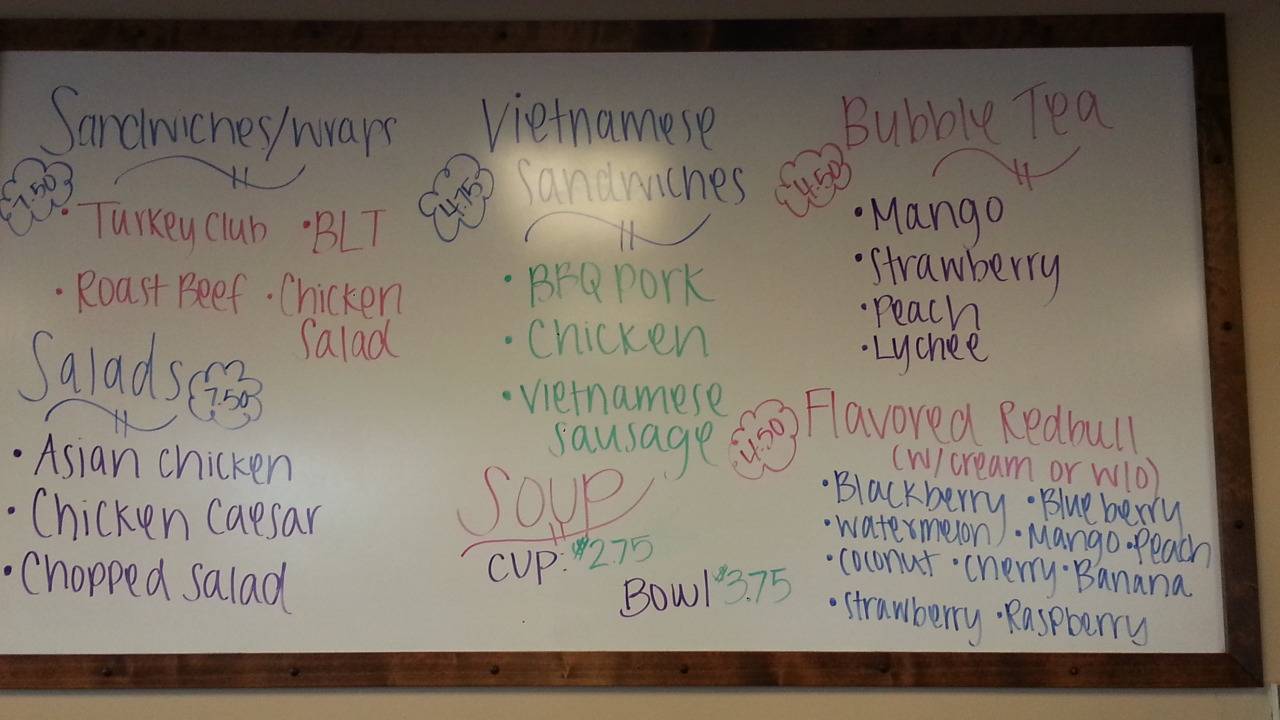 Sandwiches/wraps
7.50
• Turkey Club • BLT
• Roast Beef • Chicken
Salad
Salads 7.50
• Asian chicken
• Chicken Caesar
• Chopped salad
Vietnamese
Sandwiches
4.75
• BBQ pork
• Chicken
• Vietnamese
sausage
Soup
CUP: $2.75
Bowl $3.75
Bubble Tea
4.50
• Mango
• Strawberry
• Peach
• Lychee
4.50 Flavored Redbull
(w/cream or w/o)
• Blackberry • Blueberry
• watermelon • Mango • Peach
• coconut • cherry • Banana
• strawberry • Raspberry